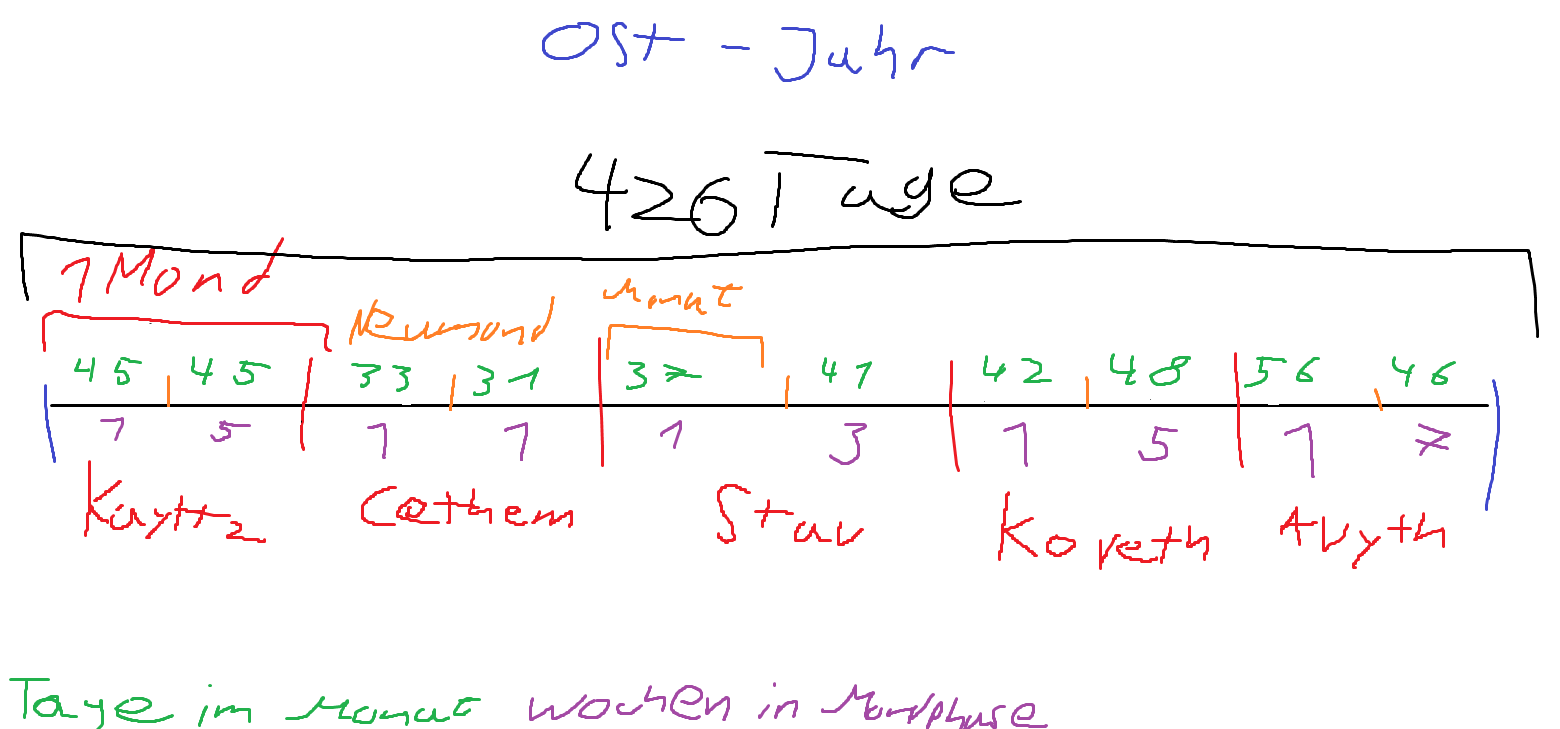 Ost - Jahr
426 Tage
1 Mond
Neumond
Monat
45 45 33 31 37 41 42 48 56 46
1 5 1 1 1 3 1 5 1 7
Kayttz Cathem Stav Koveth Avyth
Tage im Monat Wochen in Mondphase